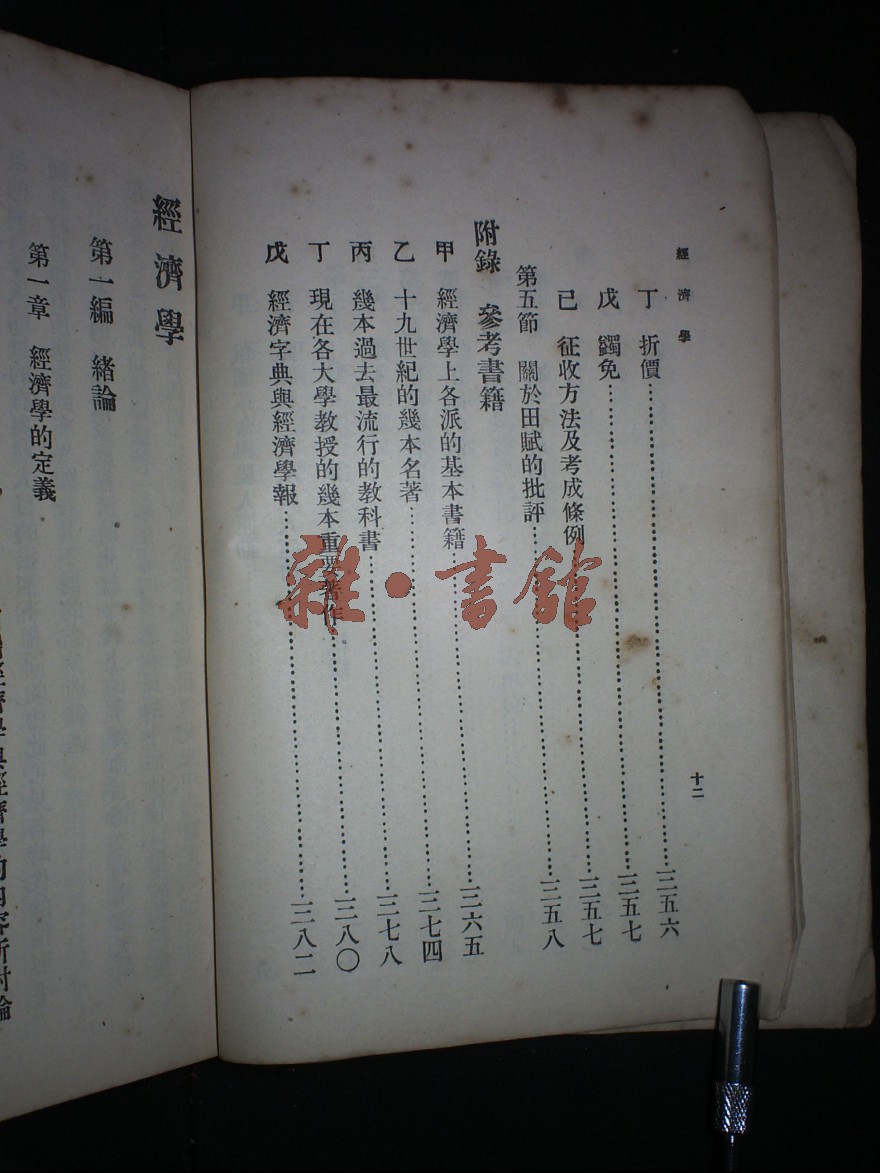 經濟學
丁 折價……三五六
戊 蠲免……三五七
己 征收方法及考成條例……三五七
第五節 關於田賦的批評……三五八
附錄 參考書籍
甲 經濟學上各派的基本書籍……三六五
乙 十九世紀的幾本名著……三七四
丙 幾本過去最流行的教科書……三七八
丁 現在各大學教授的幾本重要著作……三八〇
戊 經濟字典與經濟學報……三八二
十二
經濟學
第一編 緒論
第一章 經濟學的定義
經濟學與經濟學的內容所討論
雜·書館